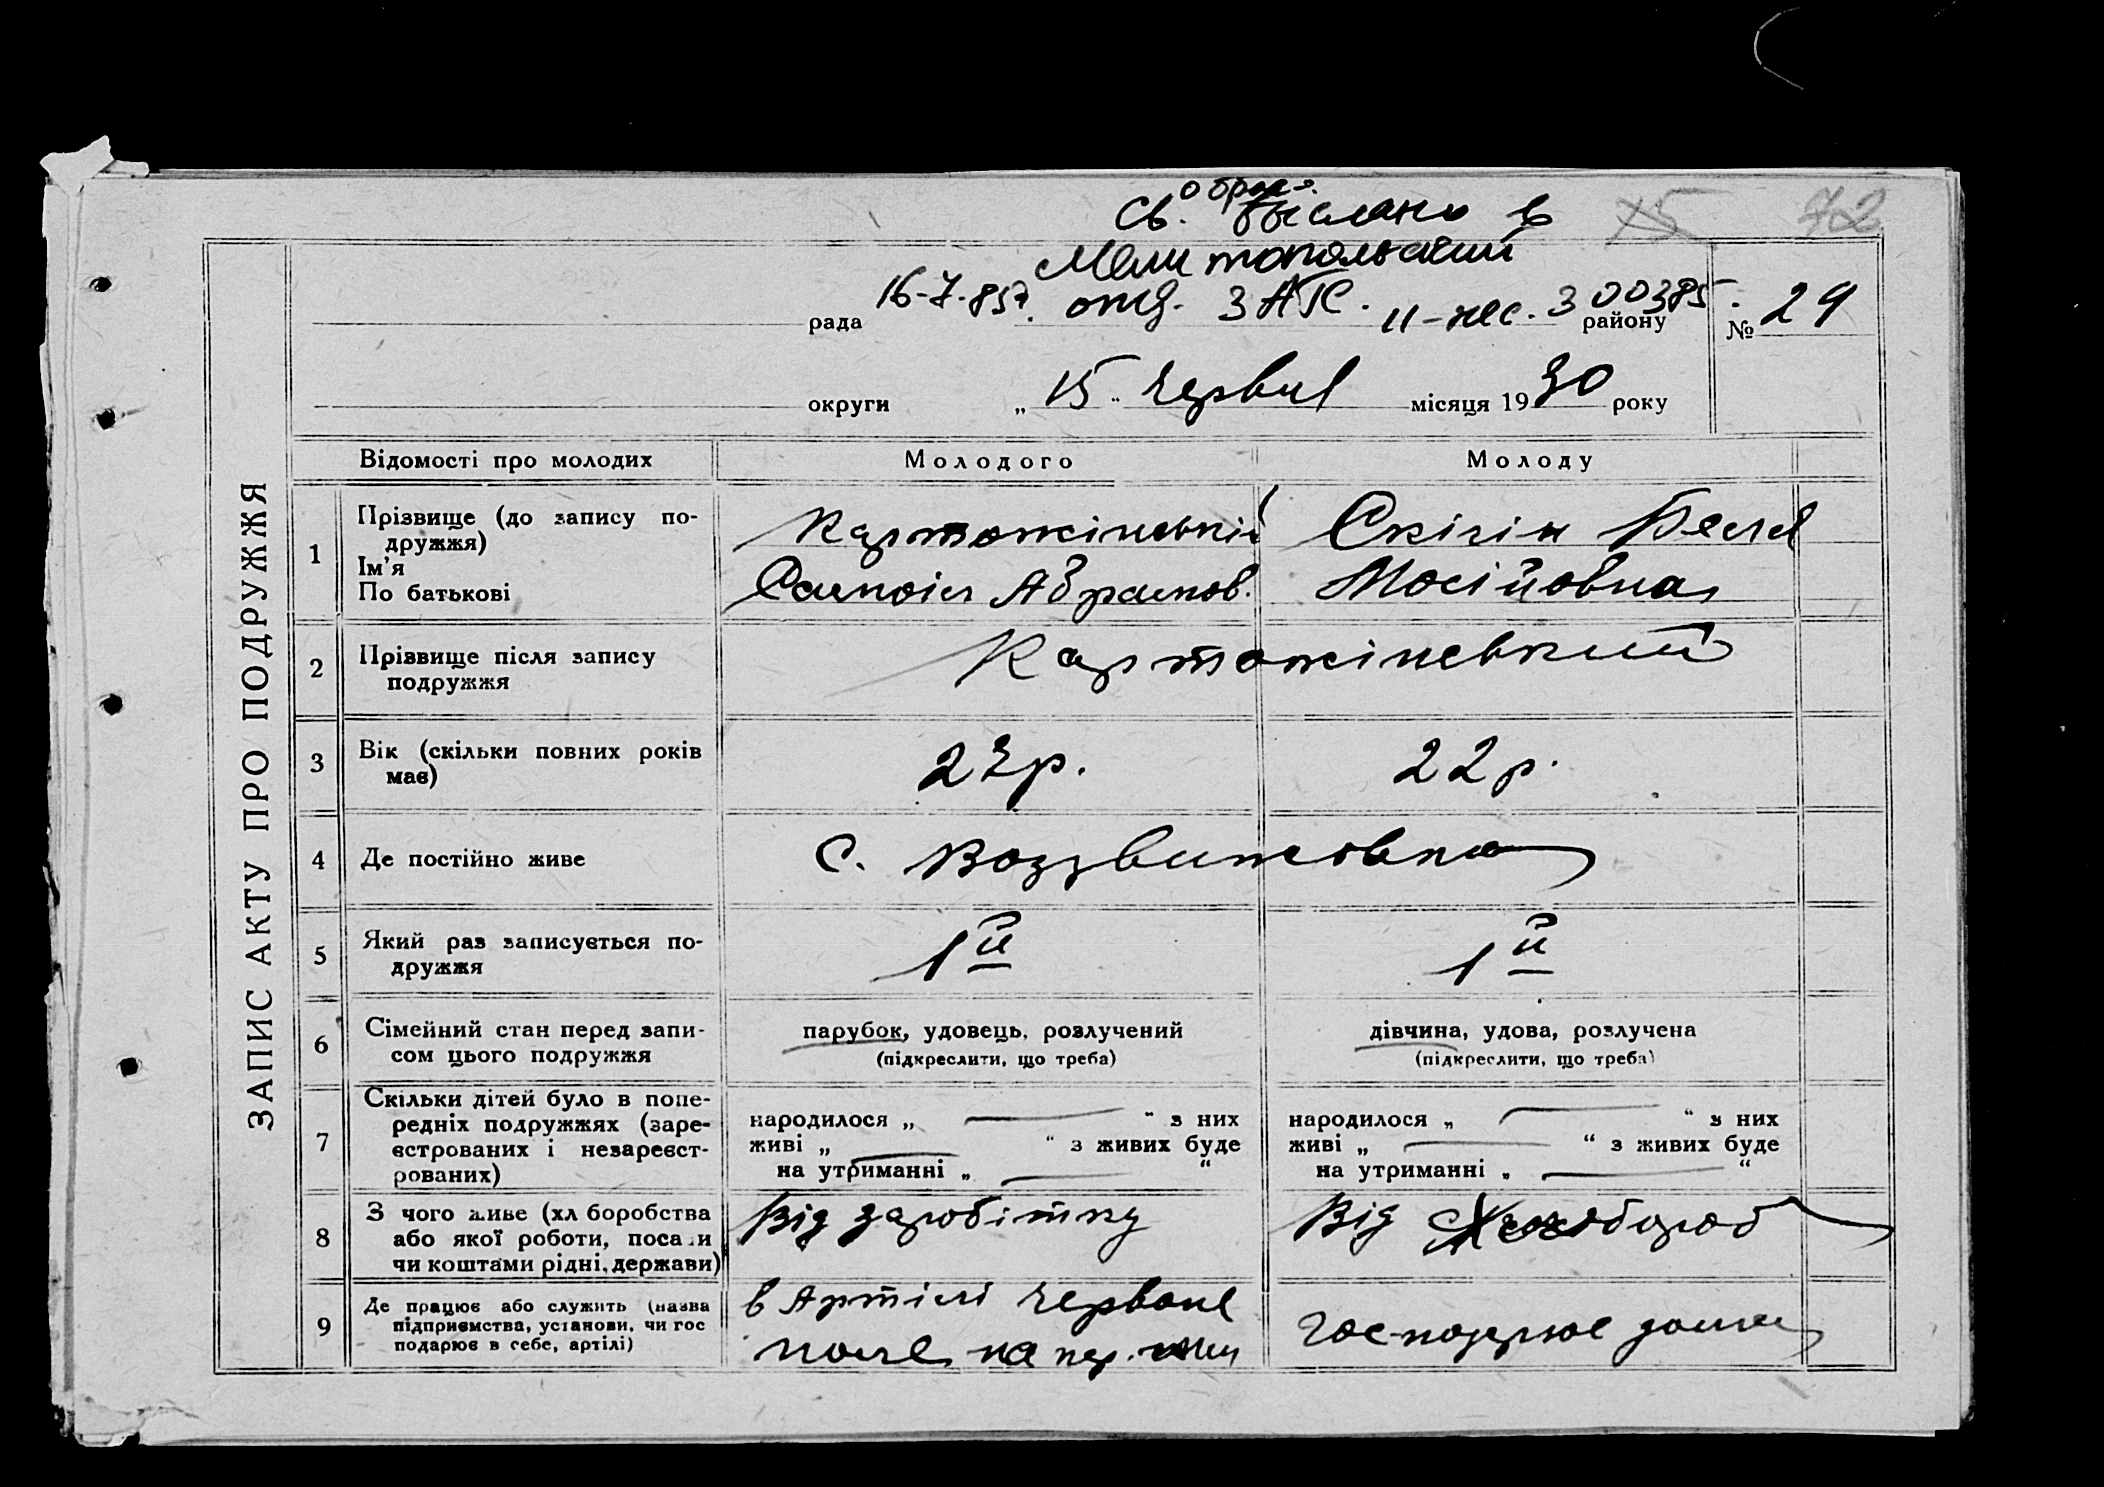 о брак.
Св. выслано в
75 72
Мелитопольский
16-7-85г. отд. ЗАГС. II-ЖС. 300385.
рада району № 29
округи „ 15 " червня місяця 1930 року
ЗАПИС АКТУ ПРО ПОДРУЖЖЯ
Відомості про молодих Молодого Молоду
1 Прізвище (до запису по-
дружжя)
Ім'я
По батькові
Картожінській
Самоіл Абрамов.
Скігін Бейля
Мосійовна
2 Прізвище після запису
подружжя
Картожінський
3 Вік (скільки повних років
має)
23р. 22р.
4 Де постійно живе с. Воздвижовка
5 Який раз записується по-
дружжя
1й 1й
6 Сімейний стан перед запи-
сом цього подружжя
парубок, удовець, розлучений
(підкреслити, що треба)
дівчина, удова, розлучена
(підкреслити, що треба)
7 Скільки дітей було в попе-
редніх подружжях (заре-
єстрованих і незареєст-
рованих)
народилося „ — " з них
живі „ — " з живих буде
на утриманні „ — "
народилося „ — " з них
живі „ — " з живих буде
на утриманні „ — "
8 З чого живе (хл боробства
або якої роботи, посади
чи коштами рідні, держави)
Від заробітку
Від хлібороб
9 Де працює або служить (назва
підприємства, установи, чи гос
подарює в себе, артілі)
в Артілі червоне
поле на
господарює дома